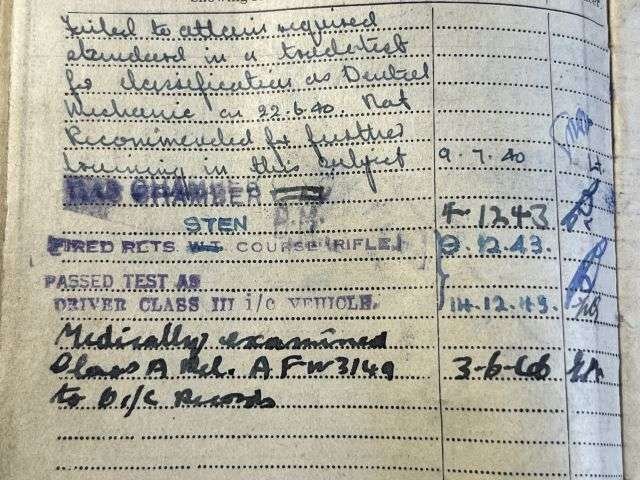 Failed to attain required
standard in a trade test
for classification as Dental
Mechanic on 22.6.40. Not
Recommended for further
training in this subject 9.7.40
GAS CHAMBER 4-12 43
STEN D.M.
FIRED RCTS W.T. COURSE (RIFLE) 12.43.
PASSED TEST AS
DRIVER CLASS III i/c VEHICLE. 14.12.43.
Medically examined
A Rel. A F W 3149 3-6-46
to O i/c Records